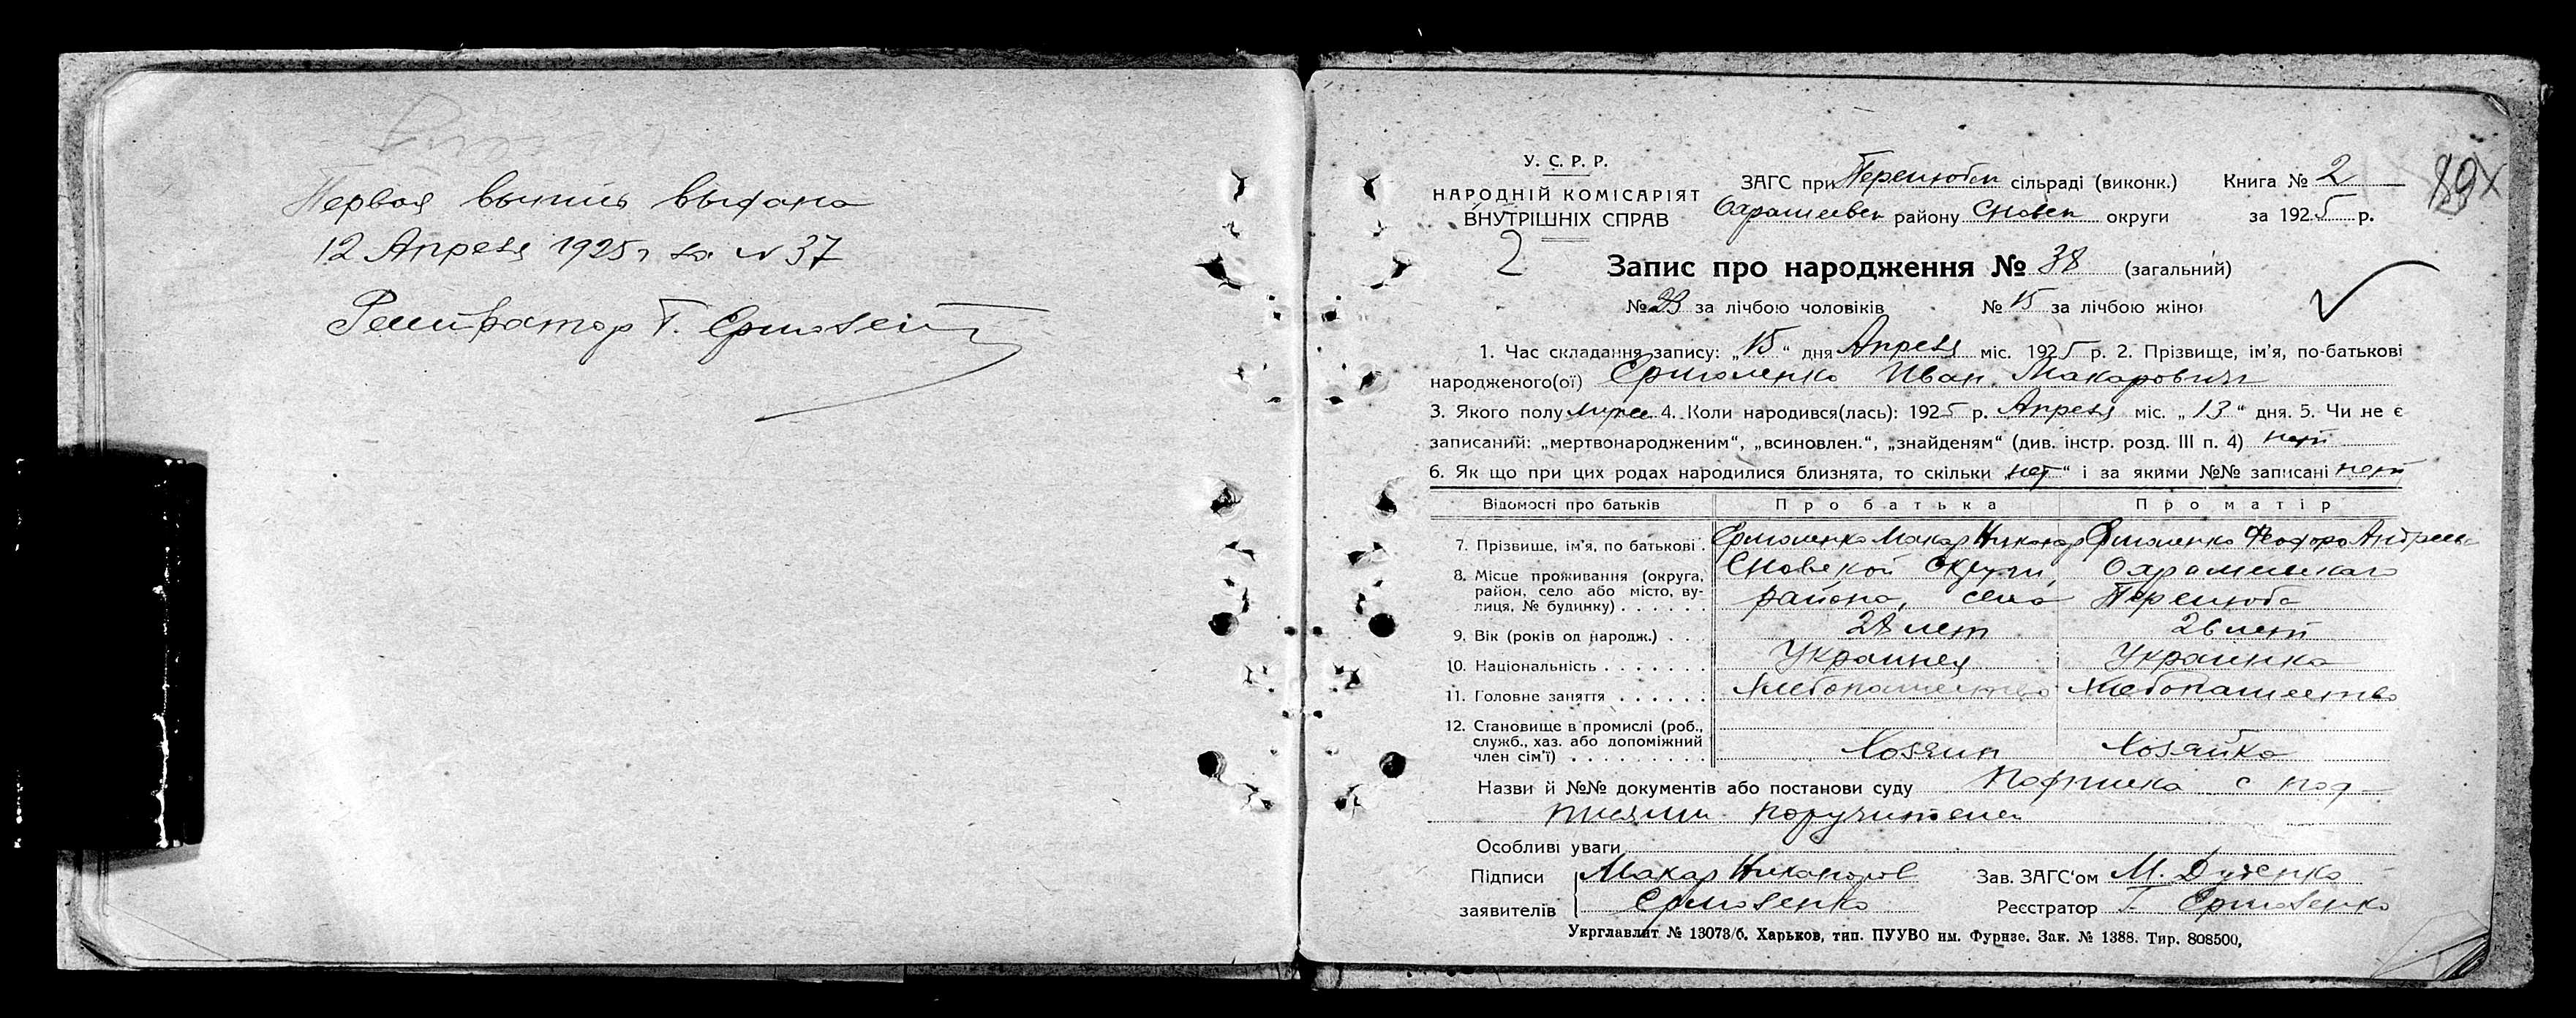 Первая выпись выдана
12 Апреля 1925 г за № 37
Регистратор Т. Ермоленко
У. С. Р. Р.
НАРОДНІЙ КОМІСАРІЯТ
ВНУТРІШНІХ СПРАВ
2
ЗАГС при Перелюбск сільраді (виконк.) Книга № 2
районy Сновск округи за 1925 р.
89
Запис про народження № 38 (загальний)
№ 23 за лічбою чоловіків № 15 за лічбою жінок
1. Час складання запису: „15“ дня Апреля міс. 1925 р. 2. Прізвище, ім'я, по-батькові
народженого(ої) Ермоленко Иван Макарович
3. Якого полу 4. Коли народився(лась): 1925 р. Апреля міс. „13“ дня. 5. Чи не є
записаний: „мертвонародженим“, „всиновлен.“, „знайденям“ (див. інстр. розд. III п. 4) нет
6. Як що при цих родах народилися близнята, то скільки „нет“ і за якими №№ записані нет
Відомості про батьків Про батька Про матір
7. Прізвище, ім'я, по батькові . Ермоленко Макар Никанор Ермоленко Феодора Андреевн
8. Місце проживання (округа, район, село або місто, вулиця, № будинку) . . . . . . Сновской округи,
района, село Перелюба
9. Вік (років од народж.) . . . 28 лет 26 лет
10. Національність . . . . . . . Украинец Украинка
11. Головне заняття . . . . . . Хлебопашество Хлебопашество
12. Становище в промислі (роб., служб., хаз. або допоміжний член сім'ї) . . . . . . . . . Хозяин Хозяйка
Назви й №№ документів або постанови суду Подписка с под-
писями поручителей
Особливі уваги
Підписи Макар Никаноров Зав. ЗАГС'ом М. Дуденко
заявителів Ермоленко Реєстратор Т. Ермоленко
Укрглавлит № 13073/б. Харьков, тип. ПУУВО им. Фрунзе. Зак. № 1388. Тир. 808500,